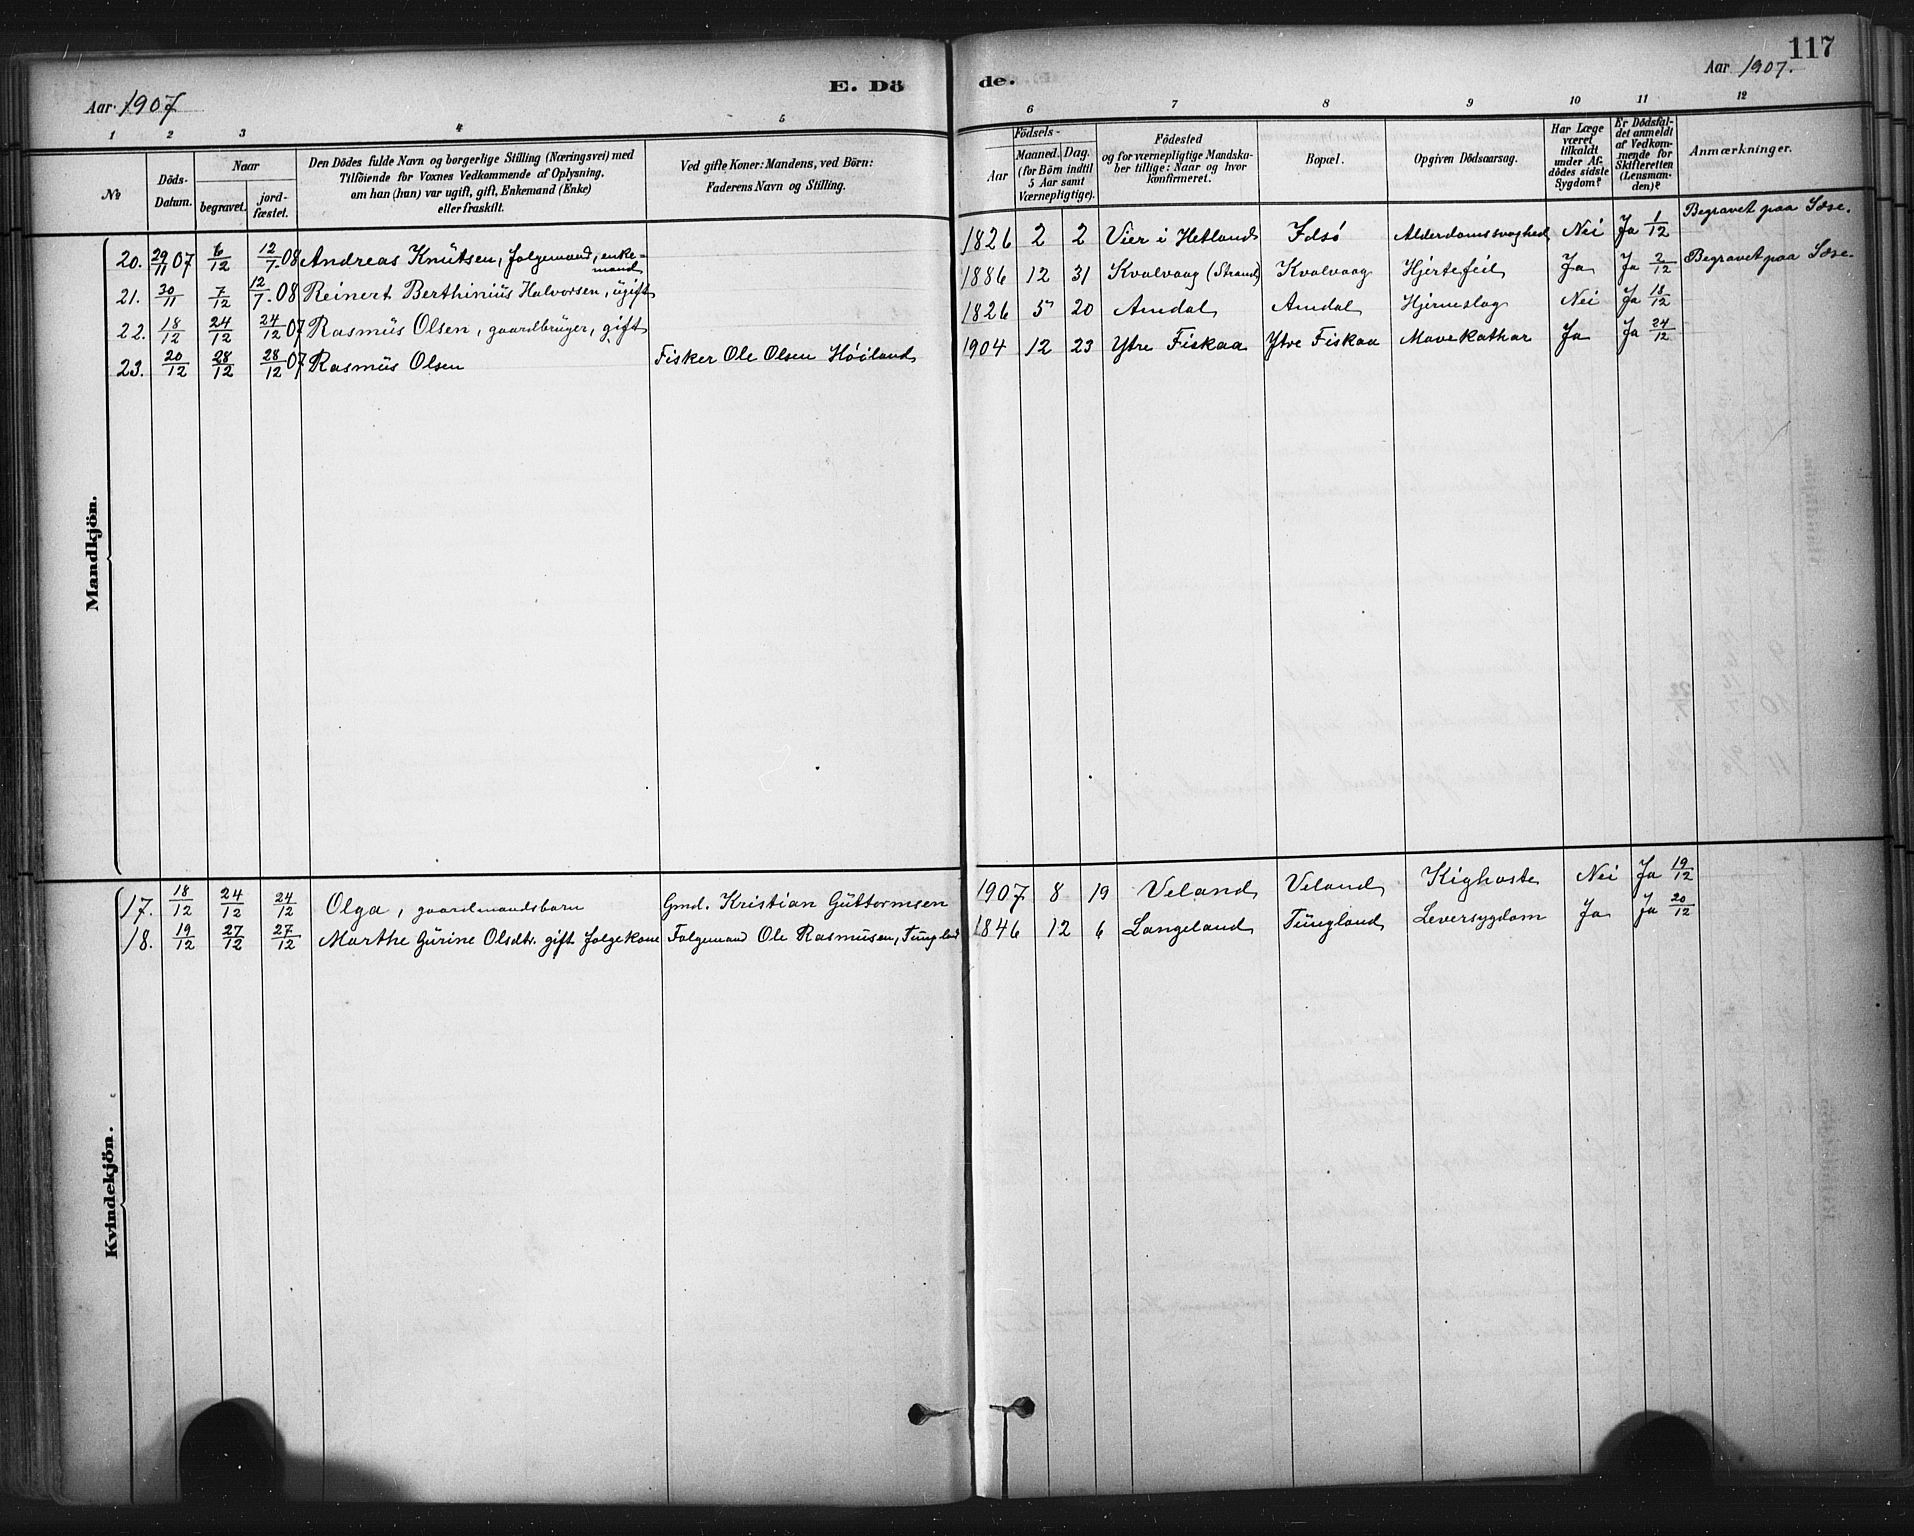 117
Aar 1907
E. Dö
de.
Aar 1907.
1 2 3 4 5 6 7 8 9 10 11 12
No
Döds-
Datum.
Naar
begravet.
jord-
fæstet.
Den Dödes fulde Navn og borgerlige Stilling (Næringsvei) med
Tilföiende for Voxnes Vedkommende af Oplysning,
om han (hun) var ugift, gift, Enkemand (Enke)
eller fraskilt.
Ved gifte Koner: Mandens, ved Börn:
Faderens Navn og Stilling.
Födsels-
Aar
Maaned. Dag.
(for Börn indtil
5 Aar samt
Værnepligtige).
Födested
og for værnepligtige Mandska-
ber tillige: Naar og hvor
konfirmeret.
Bopæl.
Opgiven Dödsaarsag.
Har Læge
været
tilkaldt
under Af-
dödes sidste
Sygdom?
Er Dödsfal-
det anmeldt
af Vedkom-
mende for
Skifteretten
(Lensman-
den)?
Anmærkninger.
Mandkjön.
20. 29/11 07 6/12 12/7 08 Andreas Knutsen, folgemand, enke-
mand 1826 2 2 Vier i Hetland Idsö Alderdomssvaghed Nei Ja 1/12 Begravet paa Idse.
21. 30/11 7/12 12/7 08 Reinert Berthinius Halvorsen, ugift 1886 12 31 Kvalvaag (Strand) Kvalvaag Hjertefeil Ja Ja 2/12 Begravet paa Idse.
22. 18/12 24/12 24/12 07 Rasmus Olsen, gaardbruger, gift 1826 5 20 Amdal Amdal Hjerneslag Nei Ja 18/12
23. 20/12 28/12 28/12 07 Rasmus Olsen Fisker Ole Olsen Höiland 1904 12 23 Ytre Fiskaa Ytre Fiskaa Mavekathar Ja Ja 24/12
Kvindekjön.
17. 18/12 24/12 24/12 Olga, gaardmandsbarn Gmd. Kristian Guttormsen 1907 8 19 Veland Veland Kighoste Nei Ja 19/12
18. 19/12 27/12 27/12 Marthe Gurine Olsdtr. gift folgekone Folgemand Ole Rasmusen, Tungland 1846 12 6 Langeland Tungland Leversygdom Ja Ja 20/12